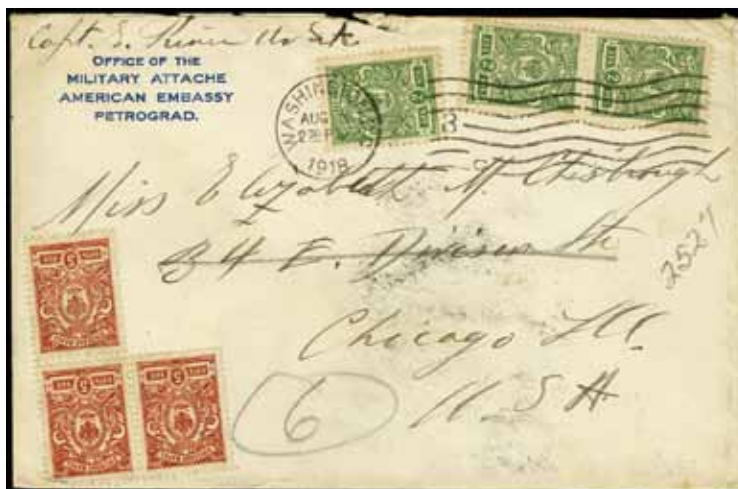 Capt. E.
OFFICE OF THE
MILITARY ATTACHE
AMERICAN EMBASSY
PETROGRAD.
WASHINGTON
AUG
1918
Miss Elizabeth M. Chesbrough
34 E. Division St.
Chicago Ill
U S A
2527
6
2
2
2
5
5
5